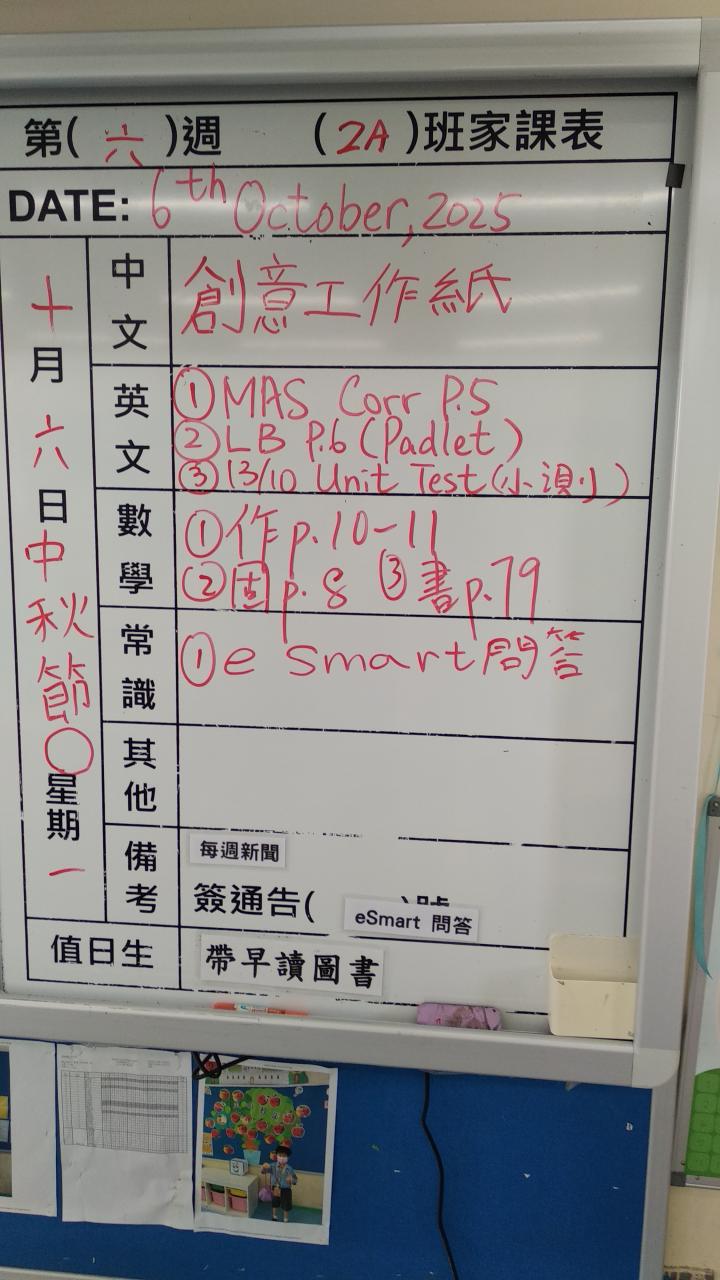 第(六)週 (2A)班家課表
DATE: 6th October, 2025
十月六日中秋節○星期一
中文
創意工作紙
英文
① MAS Corr P.5
② LB P.6 (Padlet)
③ 13/10 Unit Test (小測)
數學
① 作 p.10-11
② 固 p.8 ③ 書 p.79
常識
① e Smart 問答
其他
備考
每週新聞
簽通告( )號
eSmart 問答
值日生
帶早讀圖書